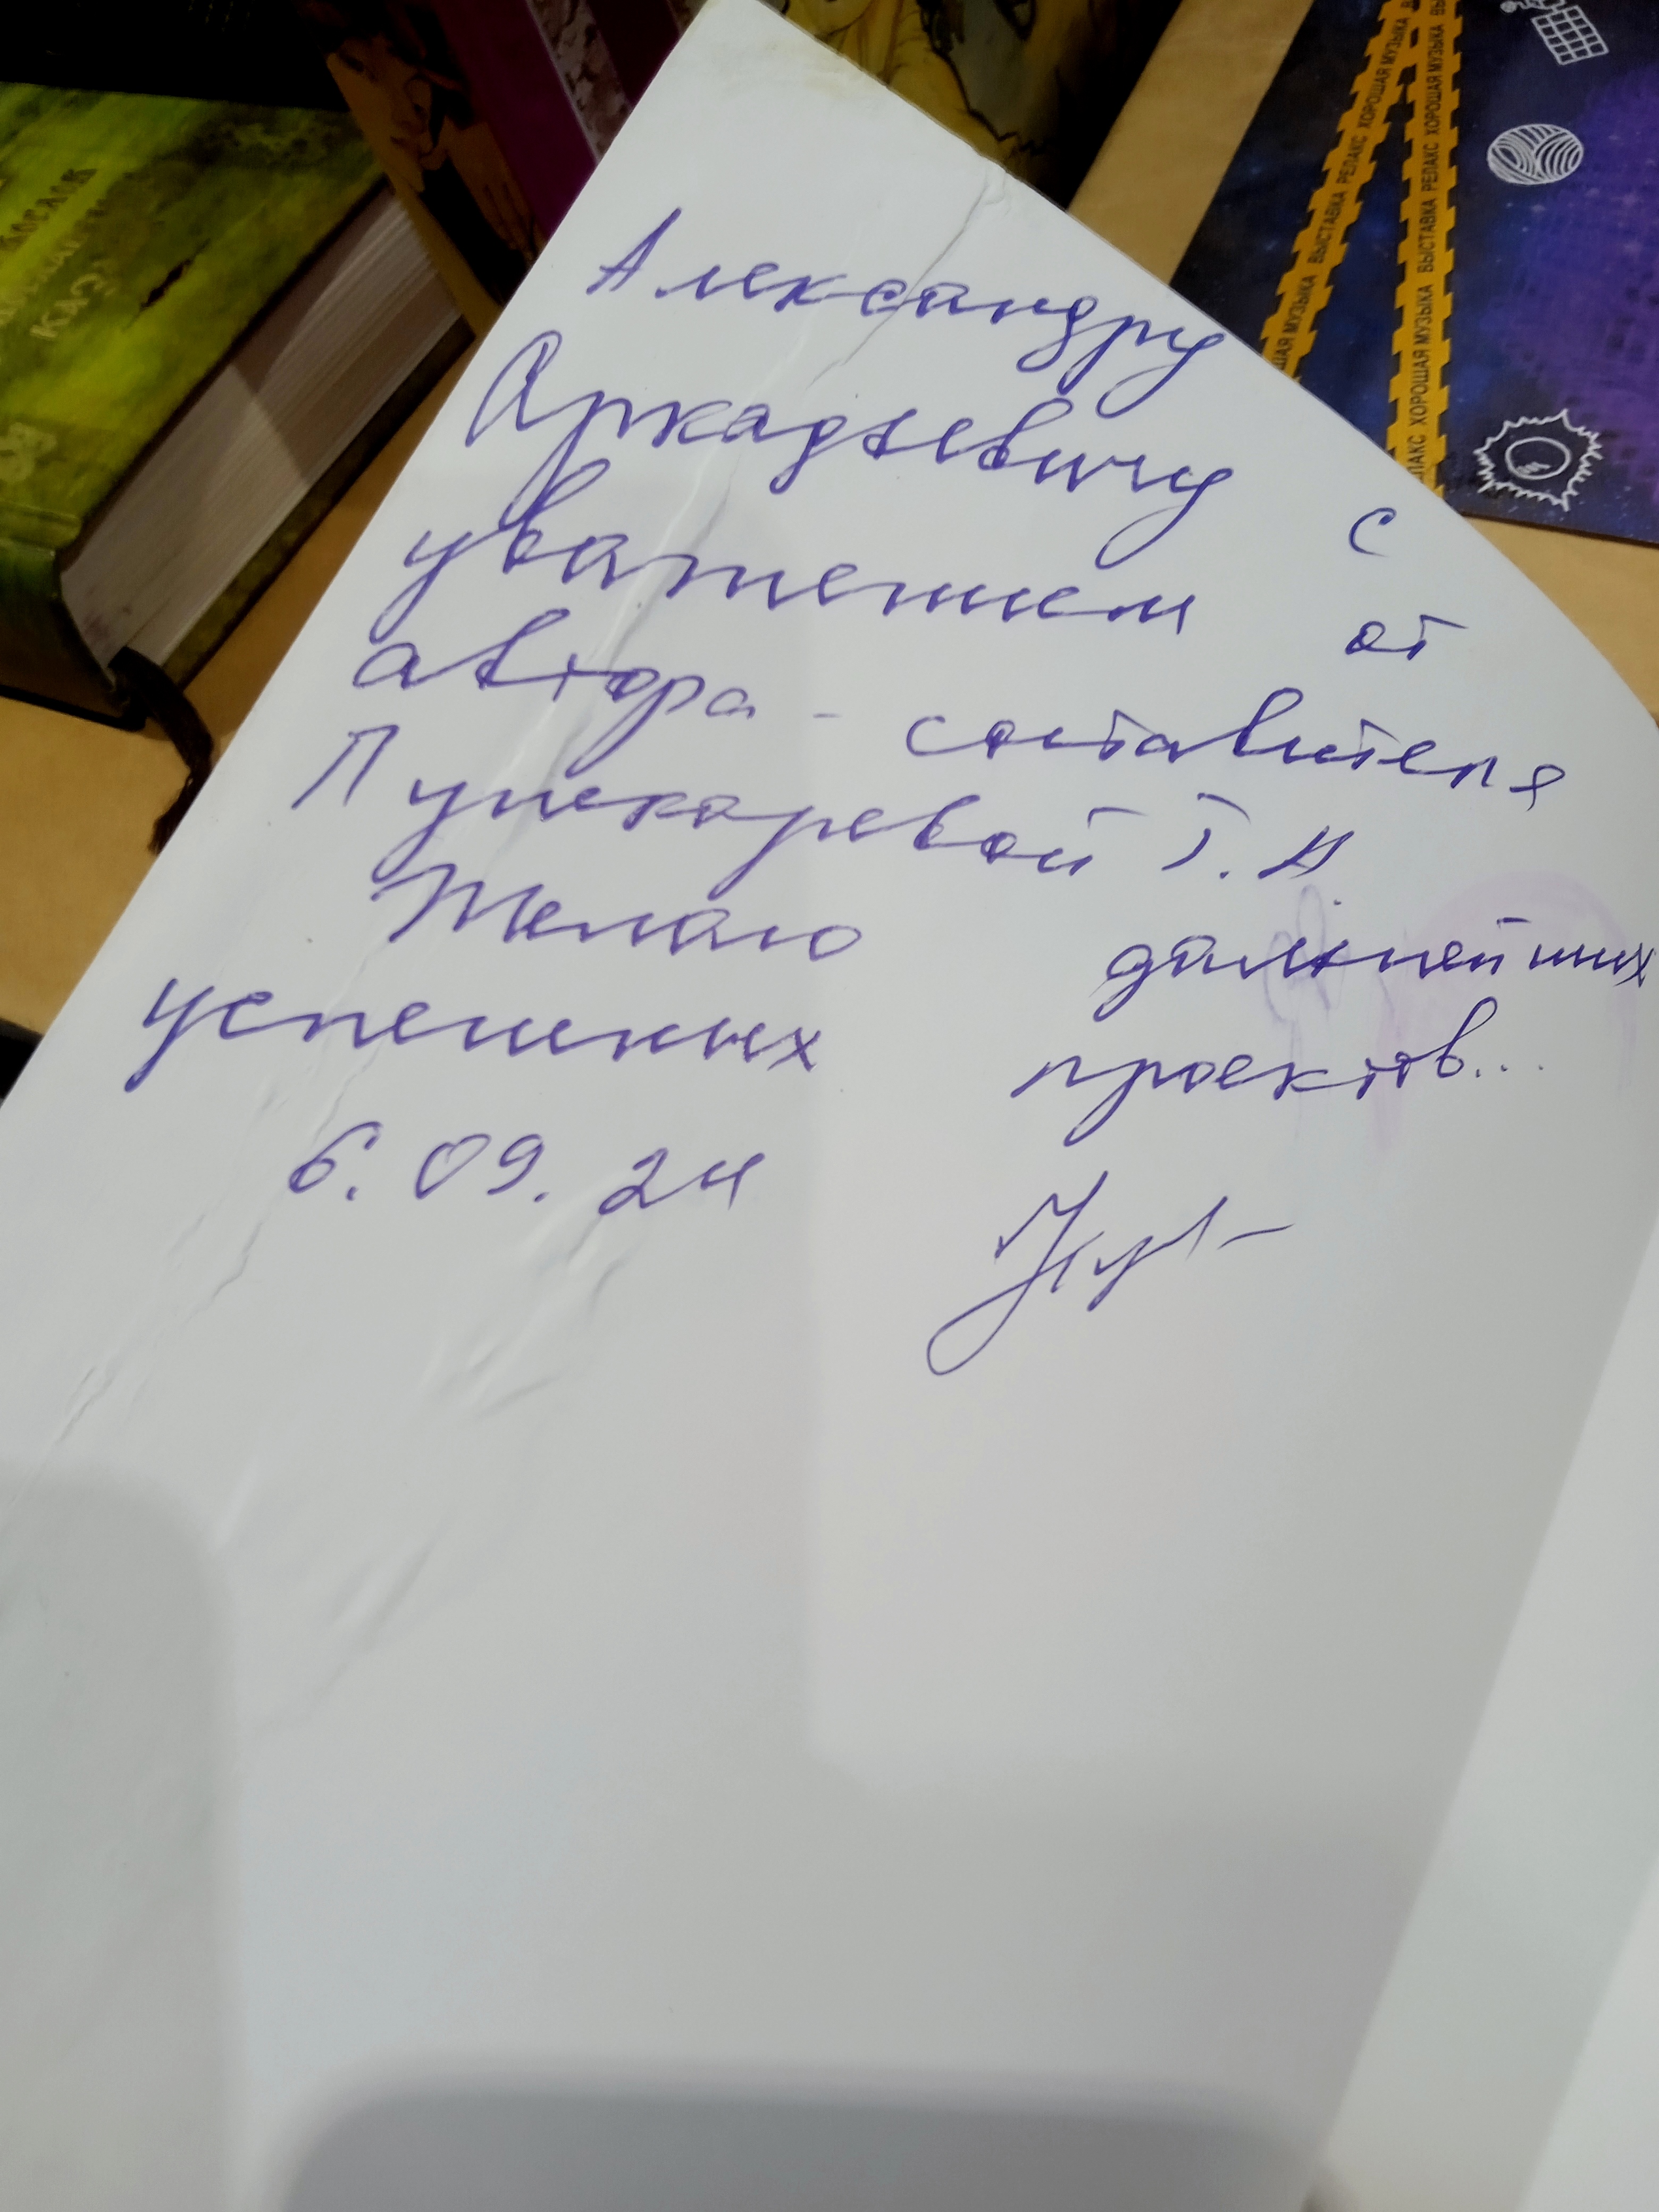 Александру
Аркадьевичу с
уважением от
автора - составителя
Пушкаревой Т. Н.
Желаю дальнейших
успешных проектов...
6. 09. 24
ХОРОШАЯ МУЗЫКА
ВЫСТАВКА РЕЛАКС ХОРОШАЯ МУЗЫКА
ВЫСТАВКА РЕЛАКС ХОРОШАЯ МУЗЫКА
ХОРОШАЯ МУЗЫКА